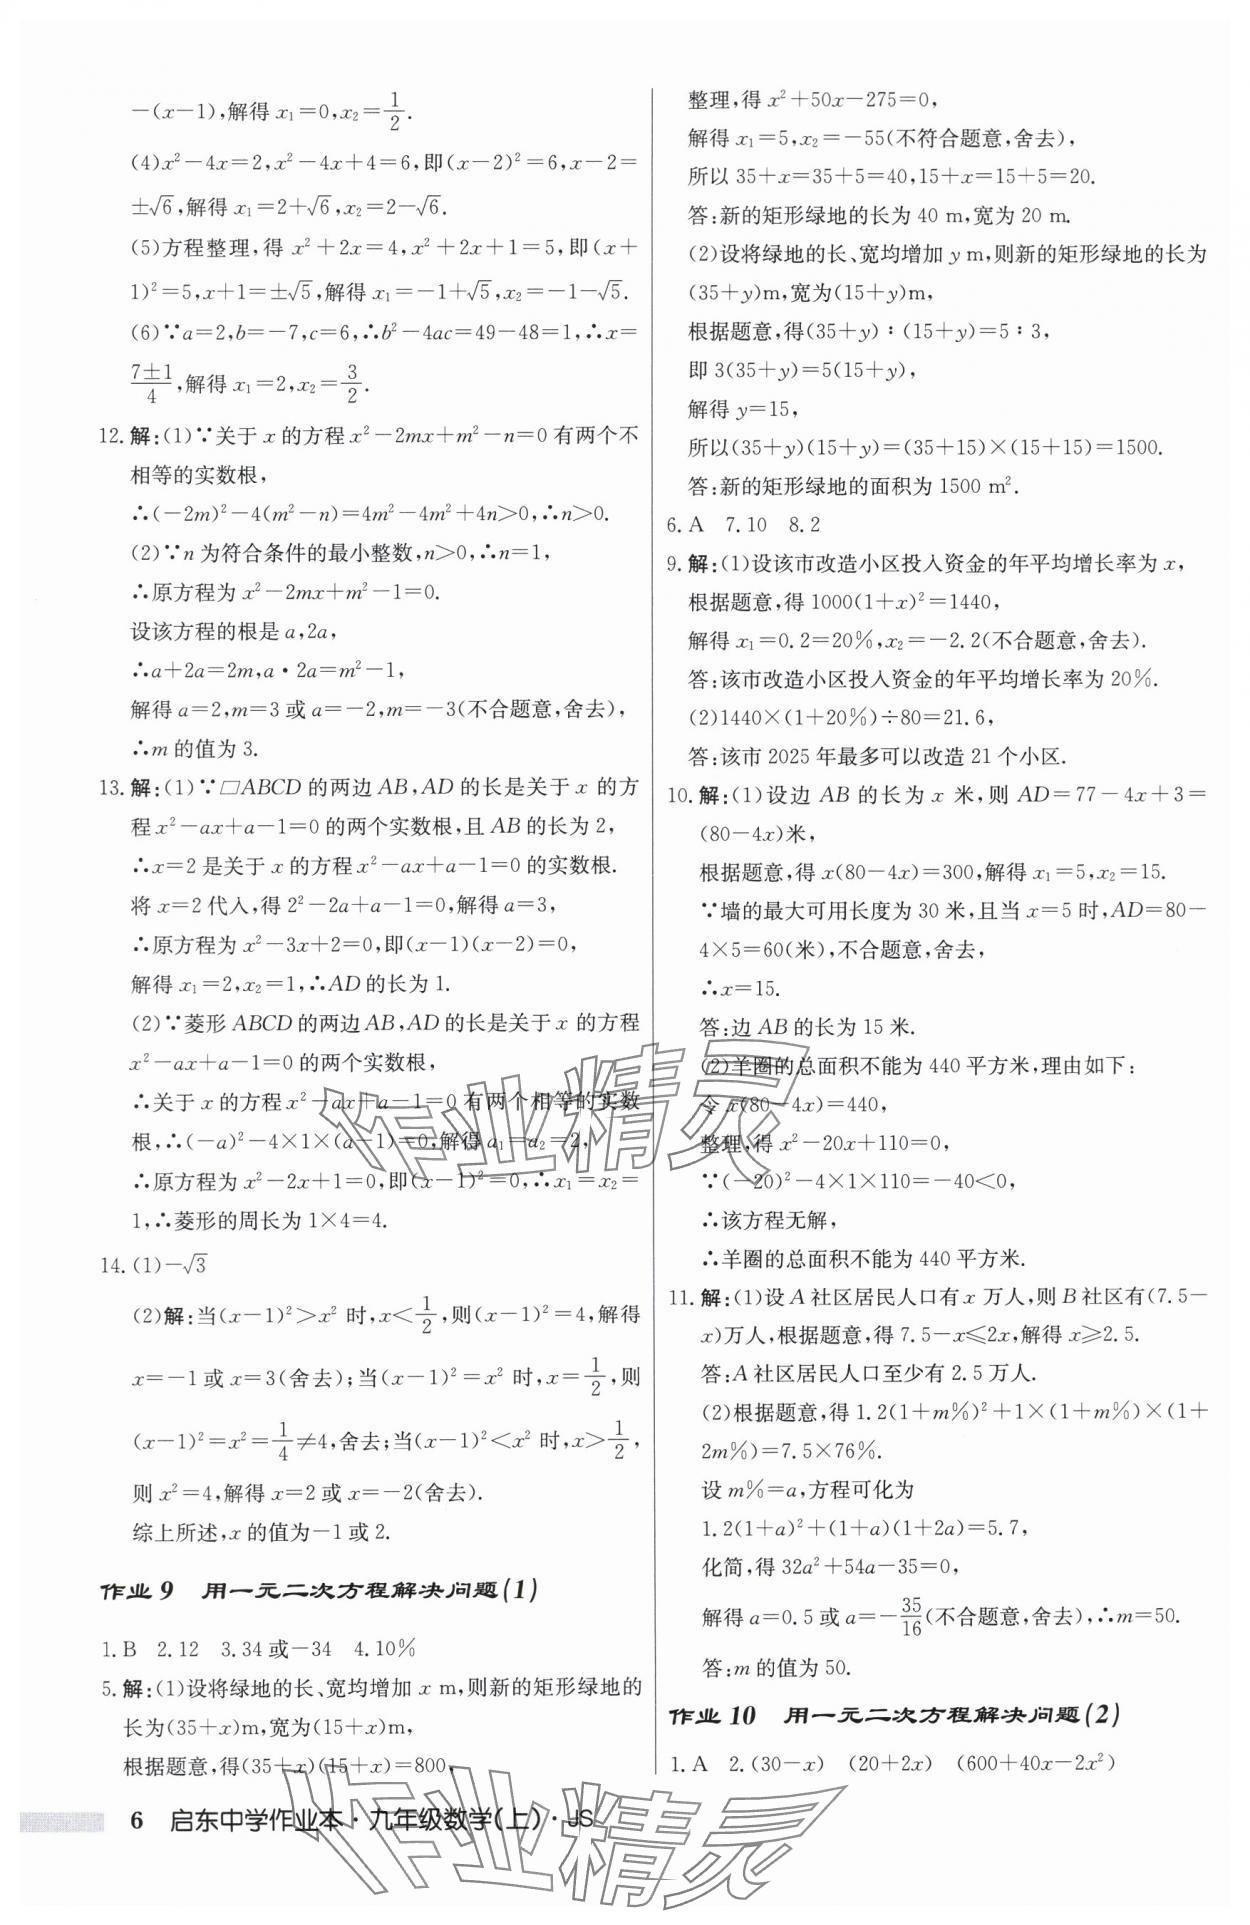 -(x-1),解得 x₁=0,x₂=1/2.
(4)x²-4x=2,x²-4x+4=6,即(x-2)²=6,x-2=
±√6,解得 x₁=2+√6,x₂=2-√6.
(5)方程整理,得 x²+2x=4,x²+2x+1=5,即(x+
1)²=5,x+1=±√5,解得 x₁=-1+√5,x₂=-1-√5.
(6)∵a=2,b=-7,c=6,∴b²-4ac=49-48=1,∴x=
(7±1)/4,解得 x₁=2,x₂=3/2.
12.解:(1)∵关于 x 的方程 x²-2mx+m²-n=0 有两个不
相等的实数根,
∴(-2m)²-4(m²-n)=4m²-4m²+4n>0,∴n>0.
(2)∵n 为符合条件的最小整数,n>0,∴n=1,
∴原方程为 x²-2mx+m²-1=0.
设该方程的根是 a,2a,
∴a+2a=2m,a·2a=m²-1,
解得 a=2,m=3 或 a=-2,m=-3(不合题意,舍去),
∴m 的值为 3.
13.解:(1)∵▱ABCD 的两边 AB,AD 的长是关于 x 的方
程 x²-ax+a-1=0 的两个实数根,且 AB 的长为 2,
∴x=2 是关于 x 的方程 x²-ax+a-1=0 的实数根.
将 x=2 代入,得 2²-2a+a-1=0,解得 a=3,
∴原方程为 x²-3x+2=0,即(x-1)(x-2)=0,
解得 x₁=2,x₂=1,∴AD 的长为 1.
(2)∵菱形 ABCD 的两边 AB,AD 的长是关于 x 的方程
x²-ax+a-1=0 的两个实数根,
∴关于 x 的方程 x²-ax+a-1=0 有两个相等的实数
根,∴(-a)²-4×1×(a-1)=0,解得 a₁=a₂=2,
∴原方程为 x²-2x+1=0,即(x-1)²=0,∴x₁=x₂=
1,∴菱形的周长为 1×4=4.
14.(1)-√3
(2)解:当(x-1)²>x² 时,x<1/2,则(x-1)²=4,解得
x=-1 或 x=3(舍去);当(x-1)²=x² 时,x=1/2,则
(x-1)²=x²=1/4≠4,舍去;当(x-1)²<x² 时,x>1/2,
则 x²=4,解得 x=2 或 x=-2(舍去).
综上所述,x 的值为-1 或 2.
作业 9 用一元二次方程解决问题(1)
1.B 2.12 3.34 或-34 4.10%
5.解:(1)设将绿地的长、宽均增加 x m,则新的矩形绿地的
长为(35+x)m,宽为(15+x)m,
根据题意,得(35+x)(15+x)=800,
整理,得 x²+50x-275=0,
解得 x₁=5,x₂=-55(不符合题意,舍去),
所以 35+x=35+5=40,15+x=15+5=20.
答:新的矩形绿地的长为 40 m,宽为 20 m.
(2)设将绿地的长、宽均增加 y m,则新的矩形绿地的长为
(35+y)m,宽为(15+y)m,
根据题意,得(35+y)∶(15+y)=5∶3,
即 3(35+y)=5(15+y),
解得 y=15,
所以(35+y)(15+y)=(35+15)×(15+15)=1500.
答:新的矩形绿地的面积为 1500 m².
6.A 7.10 8.2
9.解:(1)设该市改造小区投入资金的年平均增长率为 x,
根据题意,得 1000(1+x)²=1440,
解得 x₁=0.2=20%,x₂=-2.2(不合题意,舍去).
答:该市改造小区投入资金的年平均增长率为 20%.
(2)1440×(1+20%)÷80=21.6,
答:该市 2025 年最多可以改造 21 个小区.
10.解:(1)设边 AB 的长为 x 米,则 AD=77-4x+3=
(80-4x)米,
根据题意,得 x(80-4x)=300,解得 x₁=5,x₂=15.
∵墙的最大可用长度为 30 米,且当 x=5 时,AD=80-
4×5=60(米),不合题意,舍去,
∴x=15.
答:边 AB 的长为 15 米.
(2)羊圈的总面积不能为 440 平方米,理由如下:
令 x(80-4x)=440,
整理,得 x²-20x+110=0,
∵(-20)²-4×1×110=-40<0,
∴该方程无解,
∴羊圈的总面积不能为 440 平方米.
11.解:(1)设 A 社区居民人口有 x 万人,则 B 社区有(7.5-
x)万人,根据题意,得 7.5-x≤2x,解得 x≥2.5.
答:A 社区居民人口至少有 2.5 万人.
(2)根据题意,得 1.2(1+m%)²+1×(1+m%)×(1+
2m%)=7.5×76%.
设 m%=a,方程可化为
1.2(1+a)²+(1+a)(1+2a)=5.7,
化简,得 32a²+54a-35=0,
解得 a=0.5 或 a=-35/16(不合题意,舍去),∴m=50.
答:m 的值为 50.
作业 10 用一元二次方程解决问题(2)
1.A 2.(30-x) (20+2x) (600+40x-2x²)
6 启东中学作业本·九年级数学(上)·JS
作业精灵
作业精灵